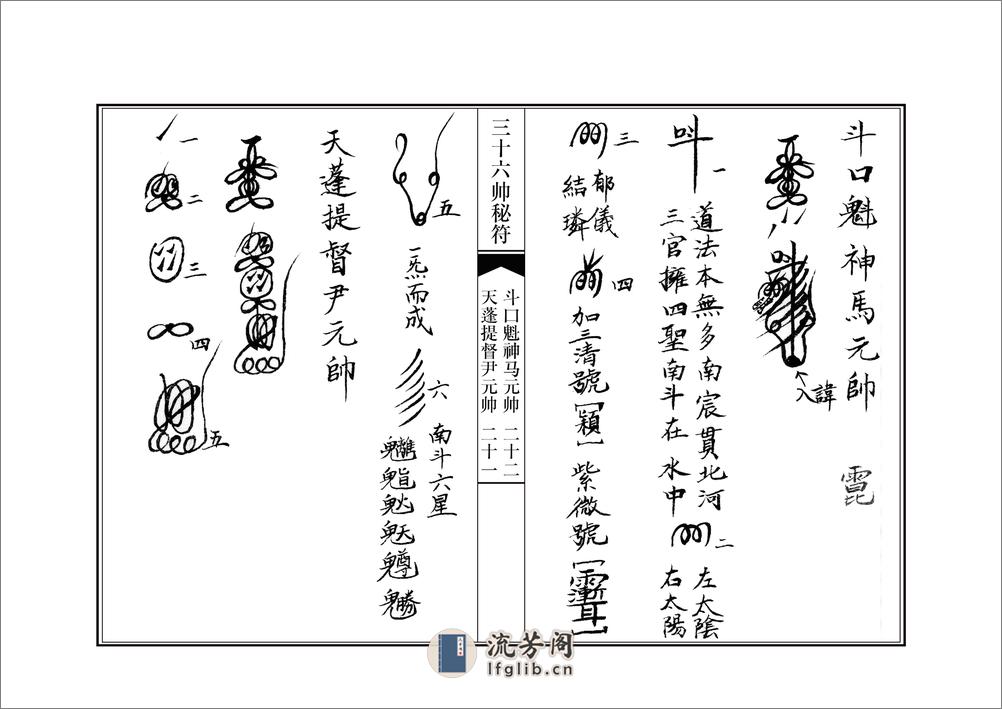 斗口魁神馬元帥
入諱
一
道法本無多南宸貫北河
三官擁四聖南斗在水中
二
左太陰
右太陽
三
郁儀
結璘
四
加三清號【穎】紫微號
三十六帅秘符
斗口魁神马元帅 二十二
天蓬提督尹元帅 二十一
五
一炁而成
六
南斗六星
魓
天蓬提督尹元帥
一
二
三
四
五
流芳阁
lfglib.cn